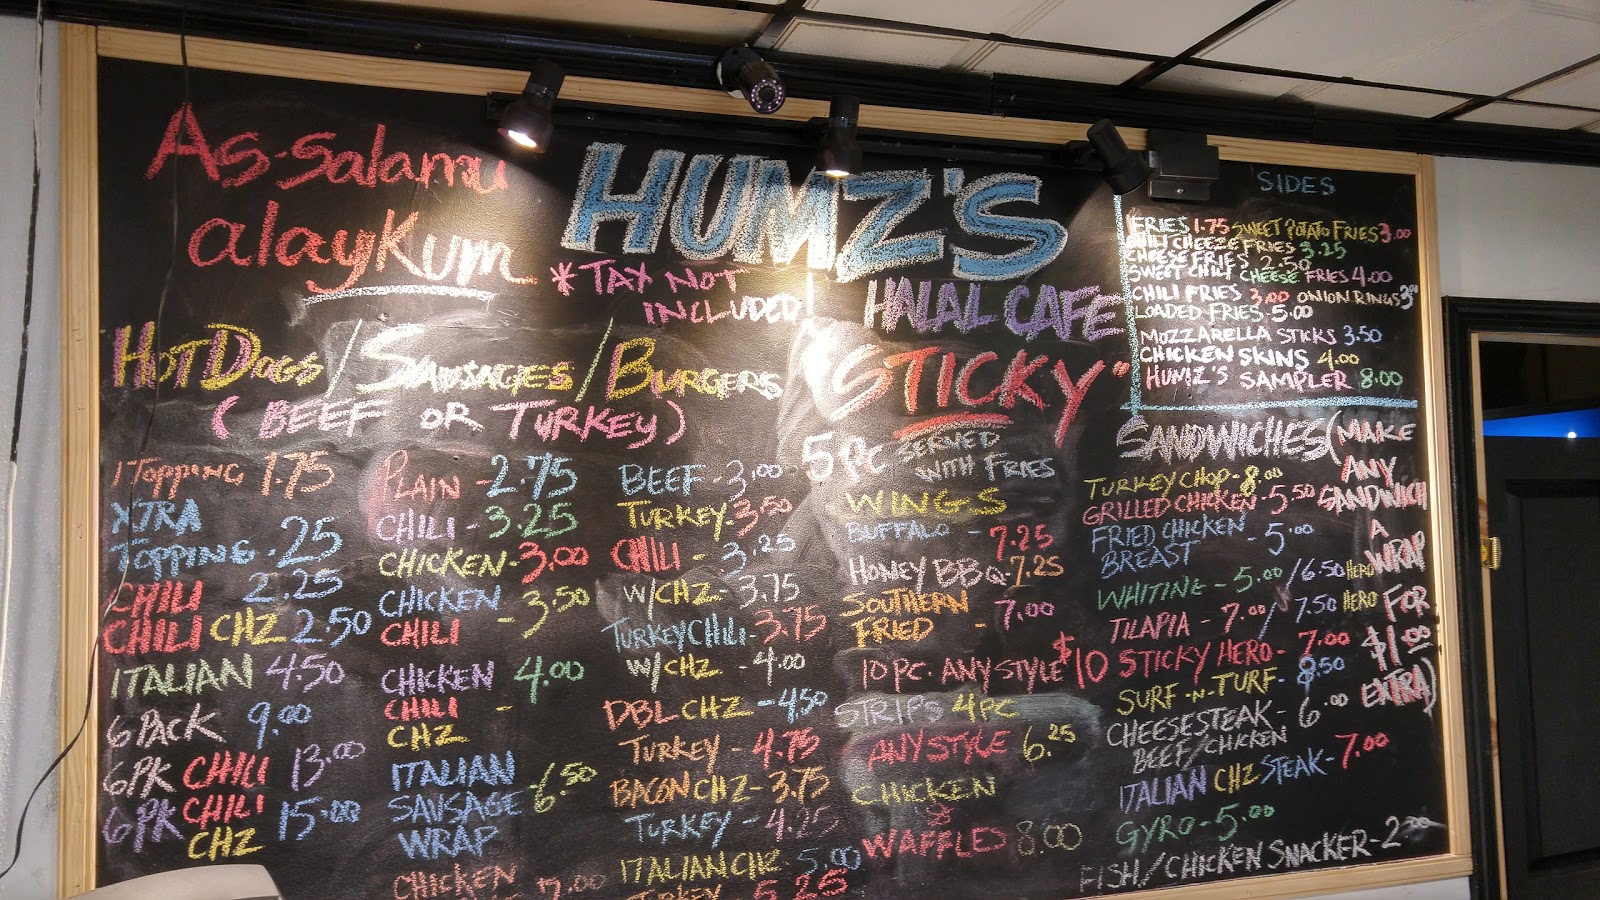 As-salamu
alaykum
HUMZ'S
*TAX NOT
INCLUDED!
HALAL CAFE
HOT DOGS/SAUSAGES/BURGERS
(BEEF OR TURKEY)
1 TOPPING 1.75
XTRA
TOPPING .25
CHILI 2.25
CHILI CHZ 2.50
ITALIAN 4.50
6 PACK 9.00
6PK CHILI 13.00
6PK CHILI
CHZ 15.00
PLAIN - 2.75
CHILI - 3.25
CHICKEN - 3.00
CHICKEN
CHILI - 3.50
CHICKEN
CHILI - 4.00
CHZ
ITALIAN
SAUSAGE - 6.50
WRAP
CHICKEN
7.00
BEEF - 3.00
TURKEY - 3.50
CHILI - 3.25
W/CHZ - 3.75
TURKEY CHILI - 3.75
W/CHZ - 4.00
DBL CHZ - 4.50
TURKEY - 4.75
BACON CHZ - 3.75
TURKEY - 4.25
ITALIAN CHZ - 5.00
TURKEY - 5.25
"STICKY"
5 PC SERVED
WITH FRIES
WINGS
BUFFALO - 7.25
HONEY BBQ - 7.25
SOUTHERN
FRIED - 7.00
10 PC. ANY STYLE $10
STRIPS 4 PC
ANY STYLE 6.25
CHICKEN
&
WAFFLES 8.00
SIDES
FRIES 1.75 SWEET POTATO FRIES 3.00
CHILI CHEEZE FRIES 3.25
CHEESE FRIES 2.50
SWEET CHILI CHEESE FRIES 4.00
CHILI FRIES 3.00 ONION RINGS 3.00
LOADED FRIES - 5.00
MOZZARELLA STICKS 3.50
CHICKEN SKINS 4.00
HUMZ'S SAMPLER 8.00
SANDWICHES (MAKE
ANY
SANDWICH
A
WRAP
FOR
$1.00
EXTRA)
TURKEY CHOP - 8.00
GRILLED CHICKEN - 5.50
FRIED CHICKEN
BREAST - 5.00
WHITING - 5.00/6.50 HERO
TILAPIA - 7.00/7.50 HERO
STICKY HERO - 7.00
SURF-N-TURF - 8.50
CHEESESTEAK - 6.00
BEEF/CHICKEN
ITALIAN CHZ STEAK - 7.00
GYRO - 5.00
FISH/CHICKEN SNACKER - 2.00